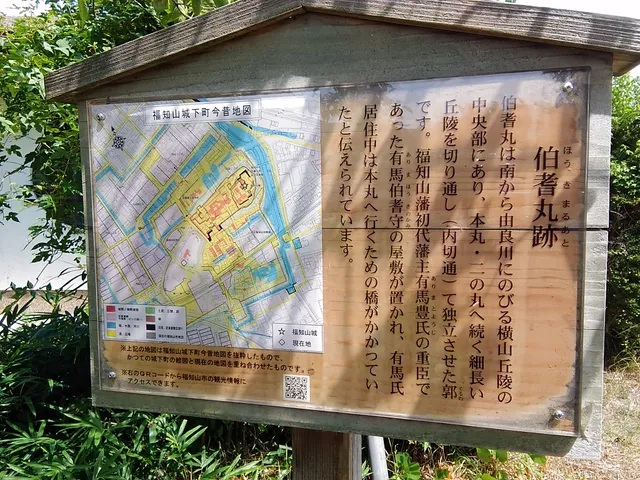 伯耆丸跡
ほう き まる あと
伯耆丸は南から由良川にのびる横山丘陵の
中央部にあり、本丸・二の丸へ続く細長い
丘陵を切り通し（内切通）て独立させた郭
です。福知山藩初代藩主有馬豊氏の重臣で
あった有馬伯耆守の屋敷が置かれ、有馬氏
居住中は本丸へ行くための橋がかかってい
たと伝えられています。
福知山城下町今昔地図
☆ 福知山城
◇ 現在地
※上記の地図は福知山城下町今昔地図を抜粋したもので、
かつての城下町の絵図と現在の地図を重ね合わせたものです。
※右のQRコードから福知山市の観光情報に
アクセスできます。